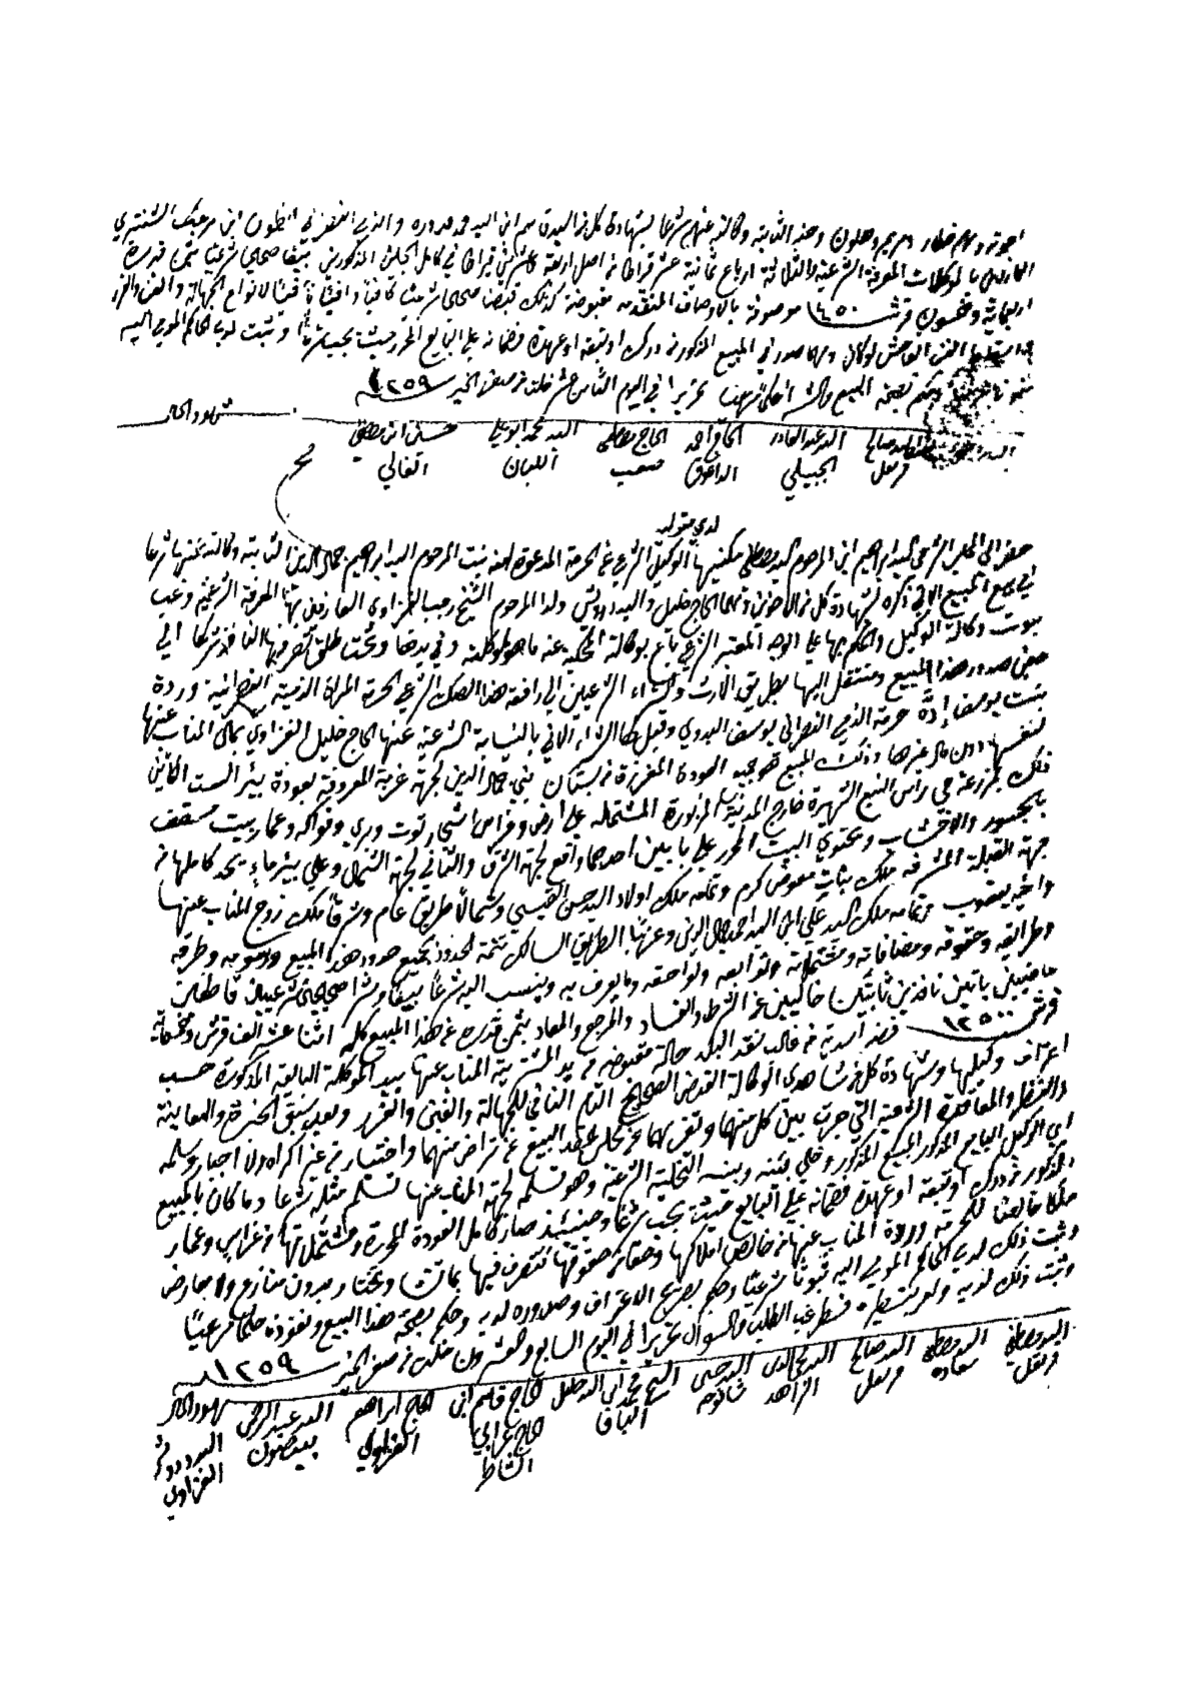 وحنه الثابتة وكالته عنهم شرعا بشهادة كل من السيد قاسم ابن السيد محمد قدوره والذمي
بالموكلات المعرفة الشرعية والثلاثة ارباع ثمانية عشر قيراطا من اصل اربعة وعشرين قيراطا في كامل الجلين المذكورين بيعا صحيحا شرعيا بثمن قدره
اربعماية وخمسون قرش ٤٥٠ موصوفة بالاوصاف المتقدمه مقبوضة كذلك قبضا صحيحا شرعيا كافيا وافيا نافيا لانواع الجهالة والغبن والغرر
الغبن الفاحش لوكان ومهما صدر في المبيع المذكور من درك او تبعة او عهدة فضمانه على البايع المحرر حيث يجب شرعا وثبت لدى الحاكم المومى اليه
وحكم بصحة المبيع والشراء تحريرا في اليوم الثامن عشر خلت من صفر الخير سنة ١٢٥٩
شهود الحال
السيد صالح السيد عبد القادر الحاج احمد الحاج مصطفى السيد محمد ابو علي حسين ابن مصطفى
قرنفل الجبيلي الداعوق صعب اللبان الغالي
صح
لدى متوليه
حضر الى المجلس الشرعي السيد ابراهيم ابن المرحوم السيد مصطفى الوكيل الشرعي عن الحرمة المدعوة بنت المرحوم السيد ابراهيم جمال الدين الثابتة وكالته عنها شرعا
في بيع المبيع الاتي ذكره بشهادة كل من الاخوين وهما الحاج خليل والسيد درويش ولدا المرحوم الشيخ رجب الغزاوي العارفين بها المعرفة الشرعية وغب
ثبوت وكالة الوكيل والحكم بها على الوجه المعتبر الشرعي باع بوكالته المحكية عنه ما هو لموكلته وفي يدها وتحت طلق تصرفها النافذ شرعا الى
حين صدور هذا المبيع ومنتقل اليها بطريق الارث والشراء الشرعيين الى رافعة هذا الصك الشرعي الحرمة المراة الذمية النصرانية وردة
بنت يوسف إدّه حرمة الذمي النصراني يوسف البدوي وقبل لها الشراء الاتي بالنيابة الشرعية عنها الحاج خليل الغزاوي بمال المناب عنها
لنفسها دون مال غيرها وذلك المبيع هو جميع العودة المفرزة من بستان بني جمال الدين لجهة غربه المعروفة بعودة بير الست الكاين
ذلك بمزرعة في راس النبع الشهيرة خارج المدينة المزبورة المشتملة على ارض وغراس اشجار توت وبري وفواكه وعمار بيت مسقف
بالجسور والاخشاب ويحتوي البيت المحرر على بابين احدهما واقع لجهة الشرق والثاني لجهة الشمال وعلى بير ماء يحد كاملها من
جهة القبلة ملك بنات معوض كرم وتمامه ملك اولاد السيد حسن القيسي وشمالا طريق عام وشرقا ملك زوج المناب عنها
واخيه يعقوب وتمامه ملك السيد علي ابن السيد احمد جمال الدين وغربا الطريق السالك تتمة الحدود بجميع حدود هذا المبيع ورسومه وطرقه
وطرايقه وحقوقه ومضافاته ومشتملاته وتوابعه ولواحقه وما يعرف به وينسب اليه شرعا بيعا وشراء صحيحين شرعيين قاطعين
ماضيين باتين نافذين ثابتين خاليين عن الشرط والفساد والمرجع والمعاد بثمن قدره عن هذا المبيع كله اثنا عشر الف قرش وخمسماية
قرش ١٢٥٠٠ فضة اسدية من غالب نقد البلد حالة مقبوضة من يد المشترية المناب عنها بيد الموكلة البايعة المذكورة حسب
اعتراف وكيلها وشهادة كل من شاهدي الوكالة القبض الصحيح التام النافي للجهالة والغبن والغرر وبعد سبق الخبرة والمعاينة
والنظر والمعاقدة الشرعية التي جرت بين كل منهما وتفرقهما عن مجلس عقد البيع عن تراض منهما واختيار من غير اكراه ولا اجبار وسلمه
اي الوكيل البايع المذكور المبيع المذكور وخلى بينه وبينه التخلية الشرعية وهو تسلمه لجهة المناب عنها تسلم مثله شرعا وما كان بالمبيع
المذكور من درك او تبعة او عهدة فضمانه على البايع حيث يجب شرعا وحينئذ صار كامل العودة المحررة ومشتملاتها من غراس وعمار
ملكا خالصا للحرمة وردة المناب عنها من خالص املاكها وحقا من حقوقها تتصرف فيها بما تشا وتختار بدون منازع ولا معارض
وثبت ذلك لدى الحاكم المومى اليه ثبوتا شرعيا وحكم بصريح الاعتراف وصدوره لديه وحكم بصحة هذا البيع ونفوذه حكما شرعيا
وثبت ذلك لديه فسطر غب الطلب والسوال تحريرا في اليوم السابع والعشرون خلت من صفر الخير سنة ١٢٥٩
شهود الحال
السيد مصطفى السيد مصطفى السيد صالح السيد السيد حسن الشيخ محمد ابن السيد خليل الحاج قاسم ابن الحاج ابراهيم السيد عبد الرحمن السيد درويش
قرنفل سعاده قرنفل الزاهد شاتوحه الياف الحاج عرابي الغزاوي بيضون الغزاوي
الشاطر